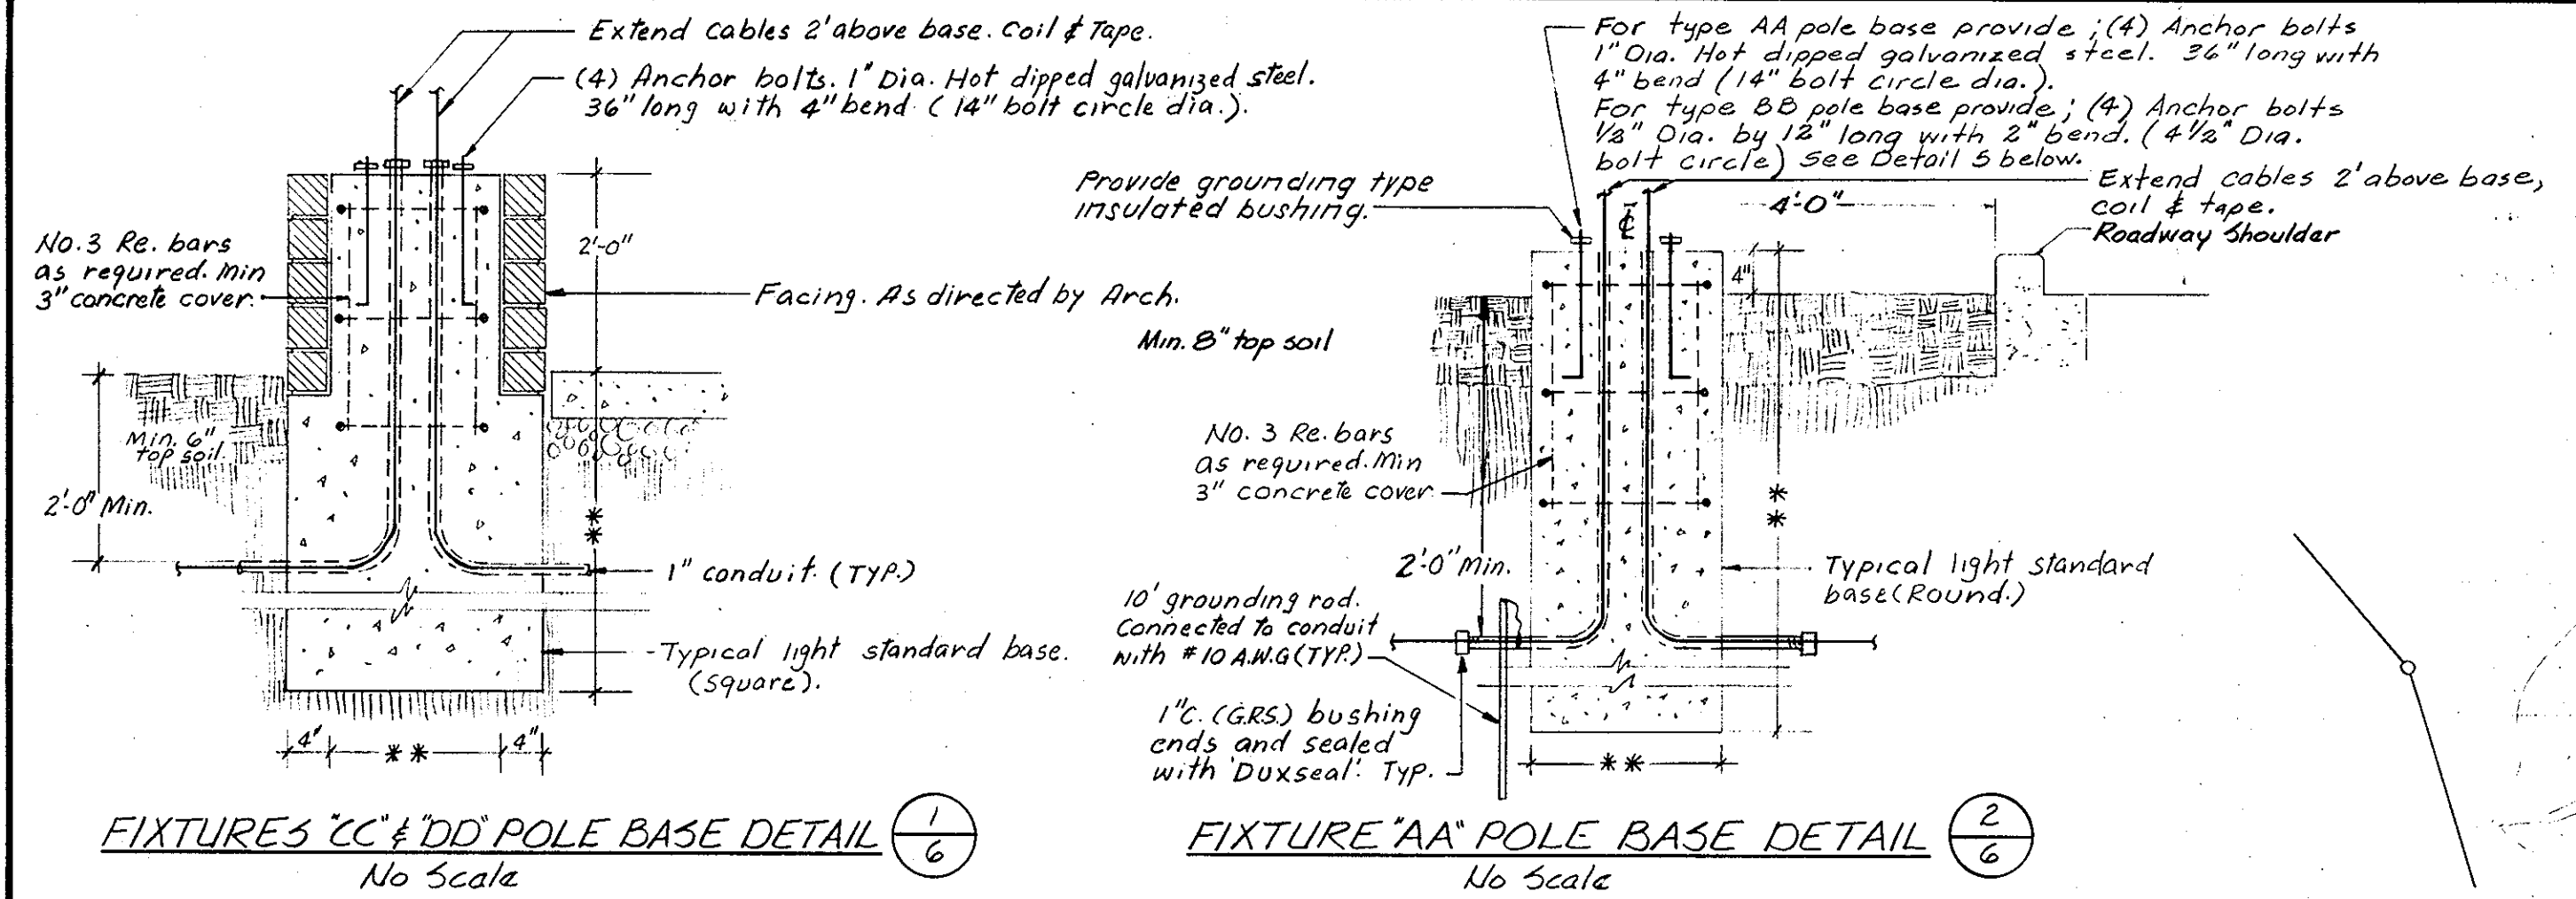 Extend cables 2' above base. Coil & Tape.
(4) Anchor bolts. 1" Dia. Hot dipped galvanized steel.
36" long with 4" bend (14" bolt circle dia.).
No. 3 Re. bars
as required. Min
3" concrete cover.
2'-0"
Facing. As directed by Arch.
Min. 6"
top soil.
2'-0" Min.
**
1" conduit. (TYP.)
Typical light standard base.
(square).
4"
**
4"
FIXTURES "CC" & "DD" POLE BASE DETAIL
1
6
No Scale
For type AA pole base provide; (4) Anchor bolts
1" Dia. Hot dipped galvanized steel. 36" long with
4" bend (14" bolt circle dia.).
For type BB pole base provide; (4) Anchor bolts
1/2" Dia. by 12" long with 2" bend. (4 1/2" Dia.
bolt circle) See Detail 5 below.
Provide grounding type
insulated bushing.
Extend cables 2' above base,
coil & tape.
4'-0"
Roadway Shoulder
4"
Min. 8" top soil
No. 3 Re. bars
as required. Min
3" concrete cover
**
2'-0" Min.
Typical light standard
base (Round.)
10' grounding rod.
Connected to conduit
with #10 A.W.G (TYP.)
1"C. (G.R.S.) bushing
ends and sealed
with 'Duxseal'. Typ.
**
FIXTURE "AA" POLE BASE DETAIL
2
6
No Scale